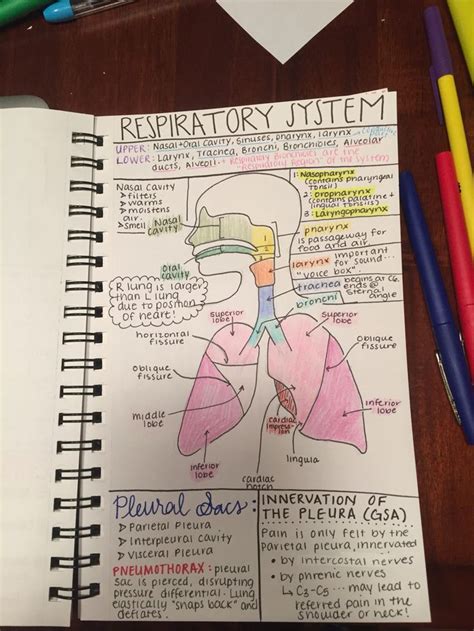 RESPIRATORY SYSTEM
UPPER: Nasal+Oral Cavity, Sinuses, pharynx, larynx
LOWER: Larynx, Trachea, Bronchi, Bronchioles, Alveolar
ducts, Alveoli * Respiratory Bronchioles are the
"Respiratory Region" of the system
Nasal Cavity
> filters
> warms
> moistens
air
> smell
Nasal
cavity
Oral
cavity
R lung is larger
than L lung
due to position
of heart!
1. Nasopharynx
(contains pharyngeal
tonsil)
2. Oropharynx
(contains palatine +
lingual tonsils)
3. Laryngopharynx
1
2
3
pharynx
is passageway for
food and air
larynx important
for sound...
"voice box"
trachea begins at C6
ends @
sternal
angle
bronchi
superior
lobe
superior
lobe
horizontal
fissure
oblique
fissure
oblique
fissure
middle
lobe
inferior
lobe
cardiac
impress-
ion
inferior
lobe
lingula
cardiac
notch
Pleural Sacs
> Parietal Pleura
> Interpleural cavity
> Visceral Pleura
PNEUMOTHORAX: pleural
sac is pierced, disrupting
pressure differential. Lung
elastically "snaps back" and
deflates.
INNERVATION OF
THE PLEURA (GSA)
Pain is only felt by the
parietal pleura, innervated
• by intercostal nerves
• by phrenic nerves
↳ C3-C5 ... may lead to
referred pain in the
shoulder or neck!